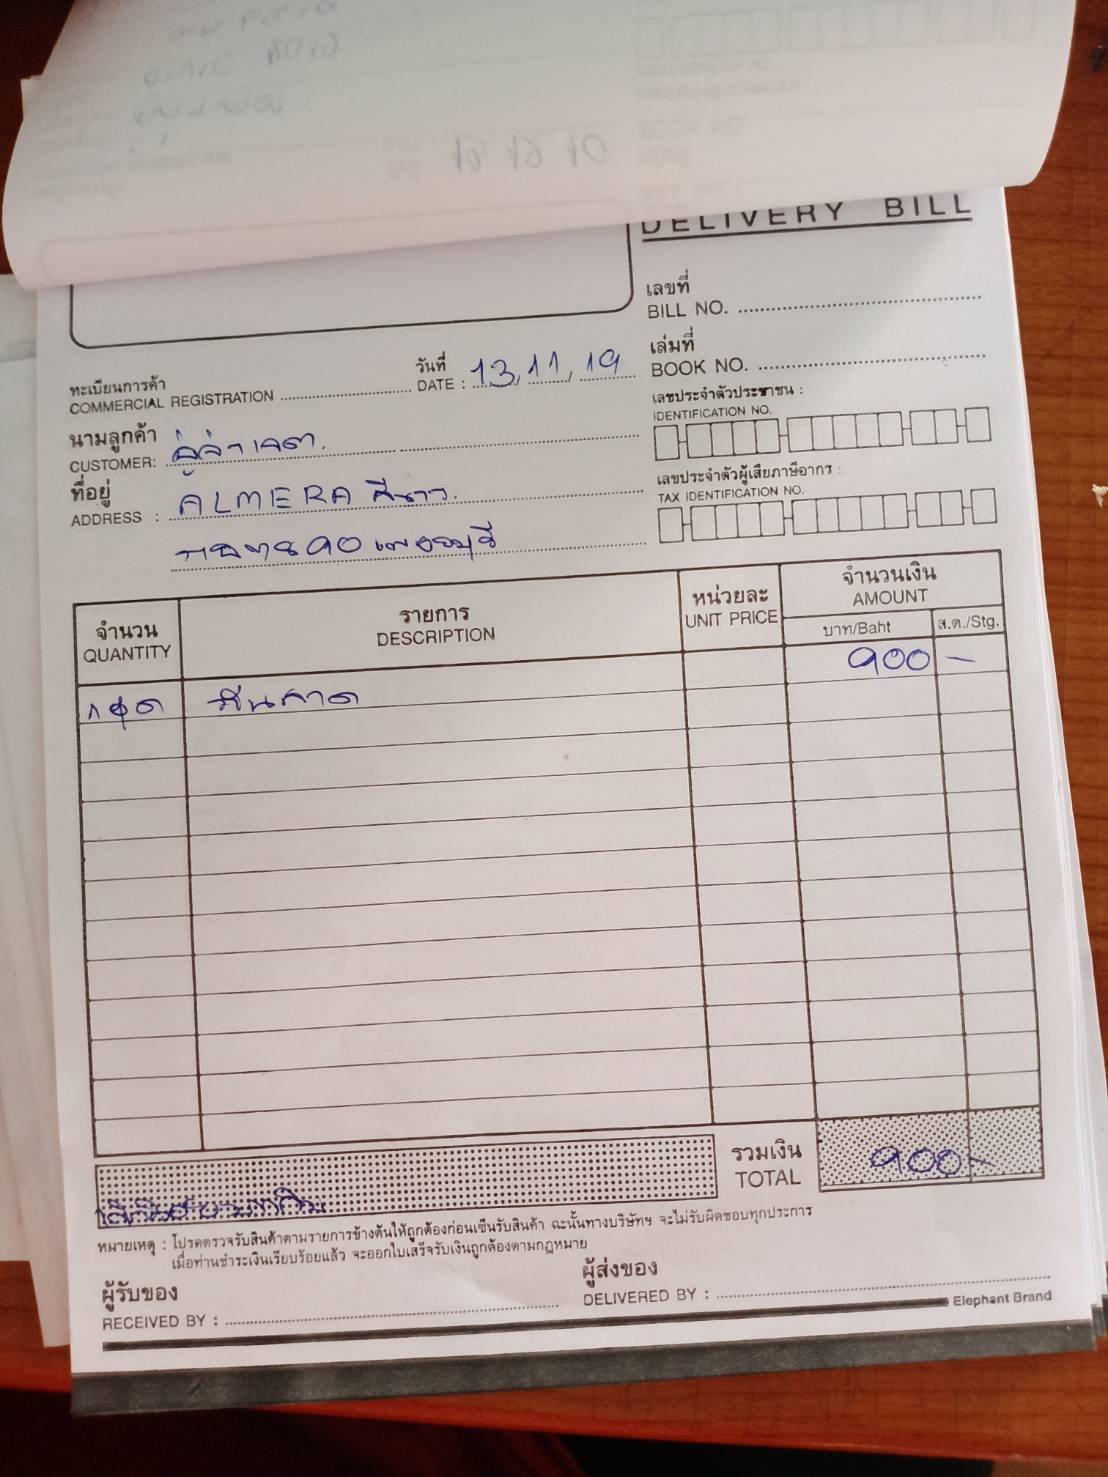 DELIVERY BILL
เลขที่
BILL NO.
เล่มที่
BOOK NO.
ทะเบียนการค้า
COMMERCIAL REGISTRATION
วันที่
DATE : 13, 11, 19
เลขประจำตัวประชาชน :
IDENTIFICATION NO.
นามลูกค้า
CUSTOMER:
ที่อยู่
ADDRESS : ALMERA สีขาว
เลขประจำตัวผู้เสียภาษีอากร :
TAX IDENTIFICATION NO.
เพชรบุรี
จำนวน
QUANTITY
รายการ
DESCRIPTION
หน่วยละ
UNIT PRICE
จำนวนเงิน
AMOUNT
บาท/Baht
ส.ต./Stg.
900 -
1 ชุด
รวมเงิน
TOTAL
900 -
หมายเหตุ : โปรดตรวจรับสินค้าตามรายการข้างต้นให้ถูกต้องก่อนเซ็นรับสินค้า ฉะนั้นทางบริษัทฯ จะไม่รับผิดชอบทุกประการ
เมื่อท่านชำระเงินเรียบร้อยแล้ว จะออกใบเสร็จรับเงินถูกต้องตามกฎหมาย
ผู้รับของ
RECEIVED BY :
ผู้ส่งของ
DELIVERED BY :
Elephant Brand